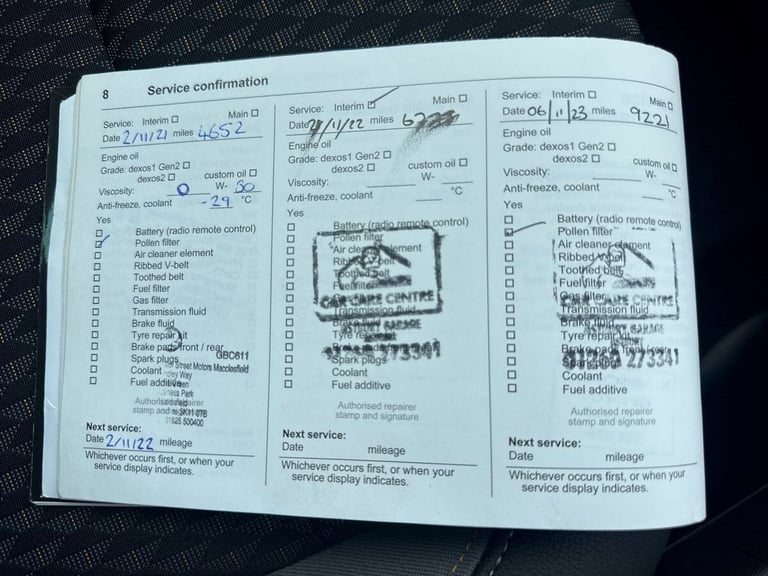 8 Service confirmation
Service: Interim Main
Date 2/11/21 miles 4652
Engine oil
Grade: dexos1 Gen2
dexos2 custom oil
Viscosity: 0 W- 30
Anti-freeze, coolant -29 °C
Yes
Battery (radio remote control)
Pollen filter
Air cleaner element
Ribbed V-belt
Toothed belt
Fuel filter
Gas filter
Transmission fluid
Brake fluid
Tyre repair kit
Brake pads front / rear
Spark plugs GBC611
Coolant Street Motors Macclesfield
Fuel additive
Authorised repairer
stamp and SK11 0TB
01625 500400
Next service:
Date 2/11/22 mileage
Whichever occurs first, or when your
service display indicates.
Service: Interim Main
Date /11/22 miles
Engine oil
Grade: dexos1 Gen2
dexos2 custom oil
Viscosity: W-
Anti-freeze, coolant °C
Yes
Battery (radio remote control)
Pollen filter
Air cleaner element
Ribbed V-belt
Toothed belt
Fuel filter
CAR CARE CENTRE
Transmission fluid
GARAGE
Spark plugs
Coolant
Fuel additive
Authorised repairer
stamp and signature
Next service:
Date mileage
Whichever occurs first, or when your
service display indicates.
Service: Interim Main
Date 06/11/23 miles 9221
Engine oil
Grade: dexos1 Gen2
dexos2 custom oil
Viscosity: W-
Anti-freeze, coolant °C
Yes
Battery (radio remote control)
Pollen filter
Air cleaner element
Ribbed V-belt
Toothed belt
Fuel filter
Gas filter
CAR CARE CENTRE
Transmission fluid
Brake fluid
GARAGE
Tyre repair kit
273341
Spark plugs
Coolant
Fuel additive
Authorised repairer
stamp and signature
Next service:
Date mileage
Whichever occurs first, or when your
service display indicates.